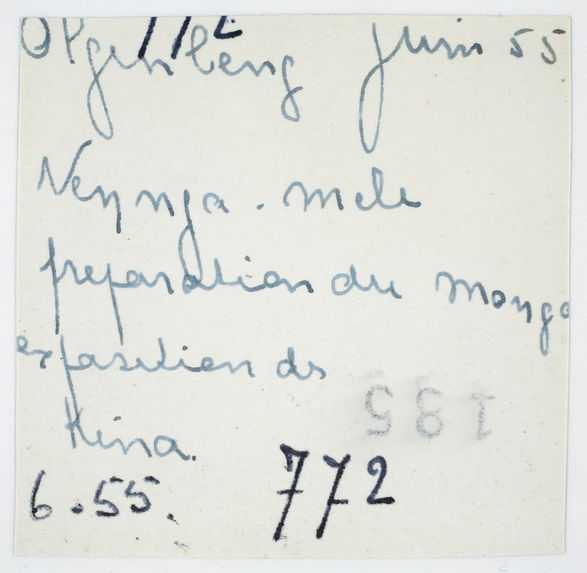 Olgenbeng Juin 55
Neynga. mele
preparation du Monga
exposition ds
Kina.
195
6.55. 772